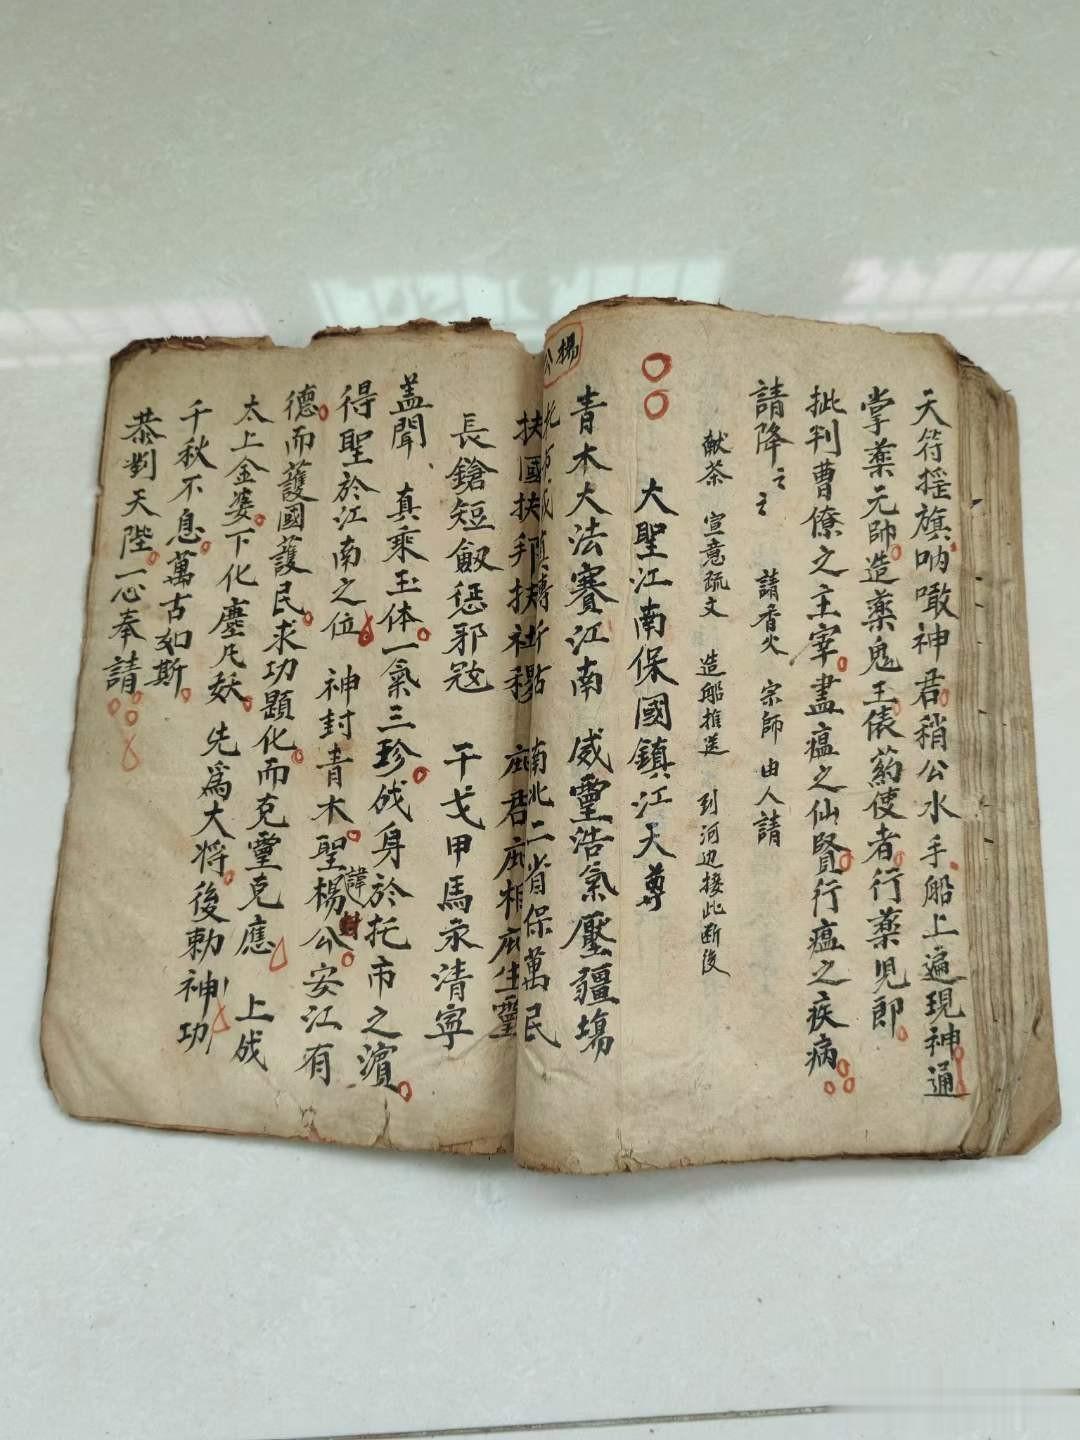 天符摇旗呐噉神君稍公水手船上遍現神通
掌藥元帥造藥鬼王俵药使者行藥児郎
批判曹僚之主宰盡瘟之仙賢行瘟之疾病
請降 請香火 宗師 由人請
献茶 宣意疏文 造船推送 到河边接此断後
大聖江南保國鎮江天尊
楊公
青木大法賽江南 威靈浩氣壓疆塲
南北二省保萬民
扶國扶 扶社稷 庇君庇相庇生靈
長鎗短劔惩邪冦 干戈甲馬永清宁
盖聞 真乘玉体一氣三珍成身於托市之濵
得聖於江南之位 神封青木聖楊公諱封安江有
德而護國護民求功顕化而克靈克應 上成
太上金婆下化塵凡妖 先為大将後勅神功
千秋不息萬古如斯
恭對天陛一心奉請